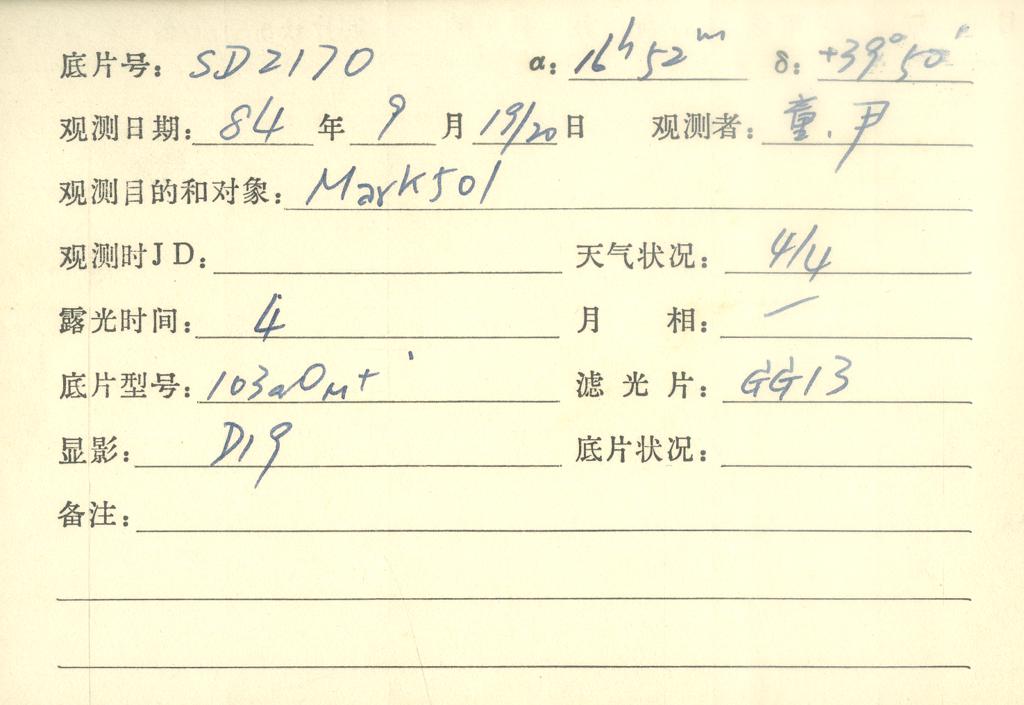 底片号: SD2170 α: 16h52m δ: +39°50′
观测日期: 84 年 9 月 19/20 日 观测者: 童、尹
观测目的和对象: Mark501
观测时JD:
天气状况: 4/4
露光时间: 4
月 相: —
底片型号: 103aO M+
滤光片: GG13
显影: D19
底片状况:
备注: